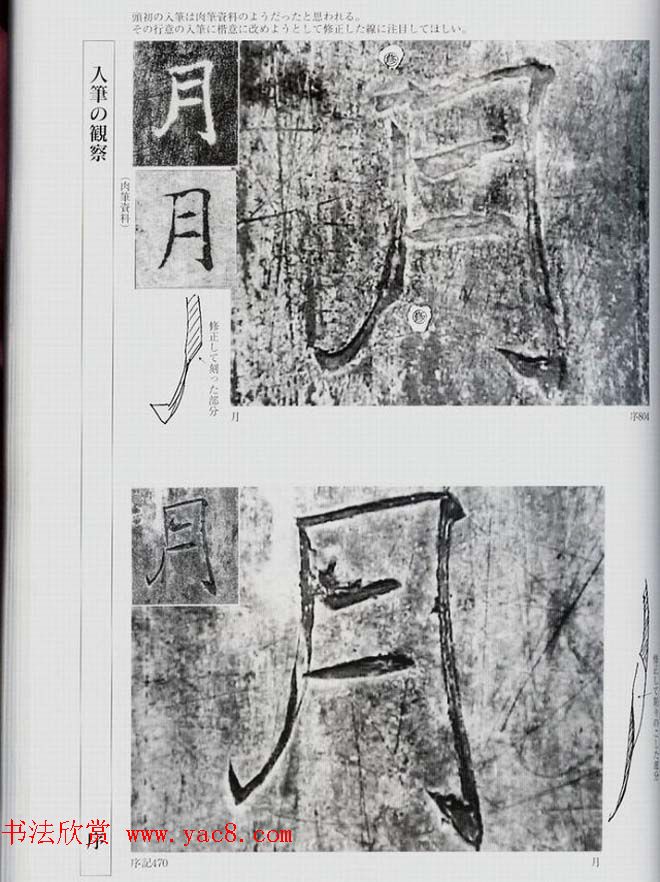 頭初の入筆は肉筆資料のようだったと思われる。
その行意の入筆に楷意に改めようとして修正した線に注目してほしい。
入筆の観察
月
(肉筆資料)
月
修正して刻った部分
月
修
修
月
序804
月
月
序
书法欣赏 www.yac8.com
序記470
月